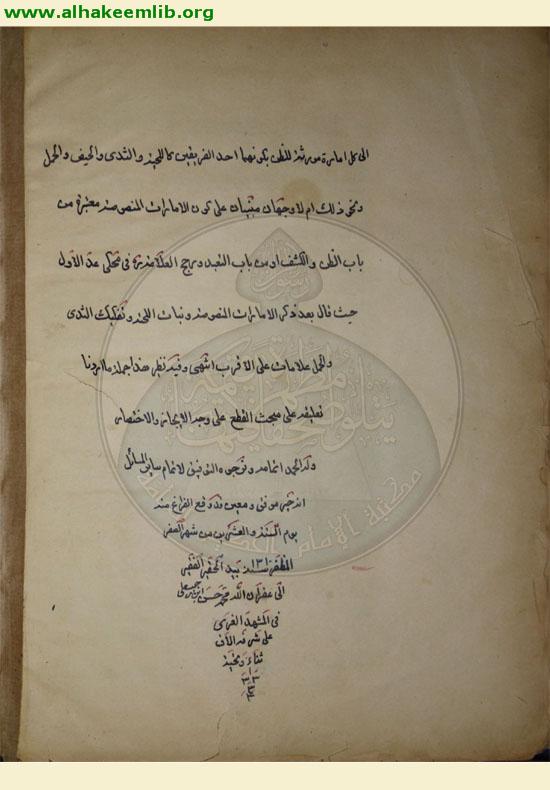 www.alhakeemlib.org
الى كل امارة مورثة للظن بكونهما احد الفريقين كاللحية والثدى والحيض والحمل
ونحو ذلك ام لا وجهان مبنيان على كون الامارات المنصوصة معتبرة من
باب الظن والكشف او من باب التعبد ورجح العلامة ره فى محكى عد الاول
حيث قال بعد ذكر الامارات المنصوصة ونبات اللحية وتفلك الثدى
والحمل علامات على الاقرب انتهى وفيه نظر هذا جملة ما اردنا
تعليقه على مبحث القطع على وجه الايجاز والاختصار
ولله الحمد اتمامه ونرجوه التوفيق لاتمام سائر المسائل
انه خير موفق ومعين قد وقع الفراغ منه
يوم السته والعشرين من شهر الصفر
المظفر سنه ١٣١ بيد الحقير الفقير
الى غفران الله محمد حسن ابن
فى المشهد الغرى
على مشرفه الاف
ثناء وتحية